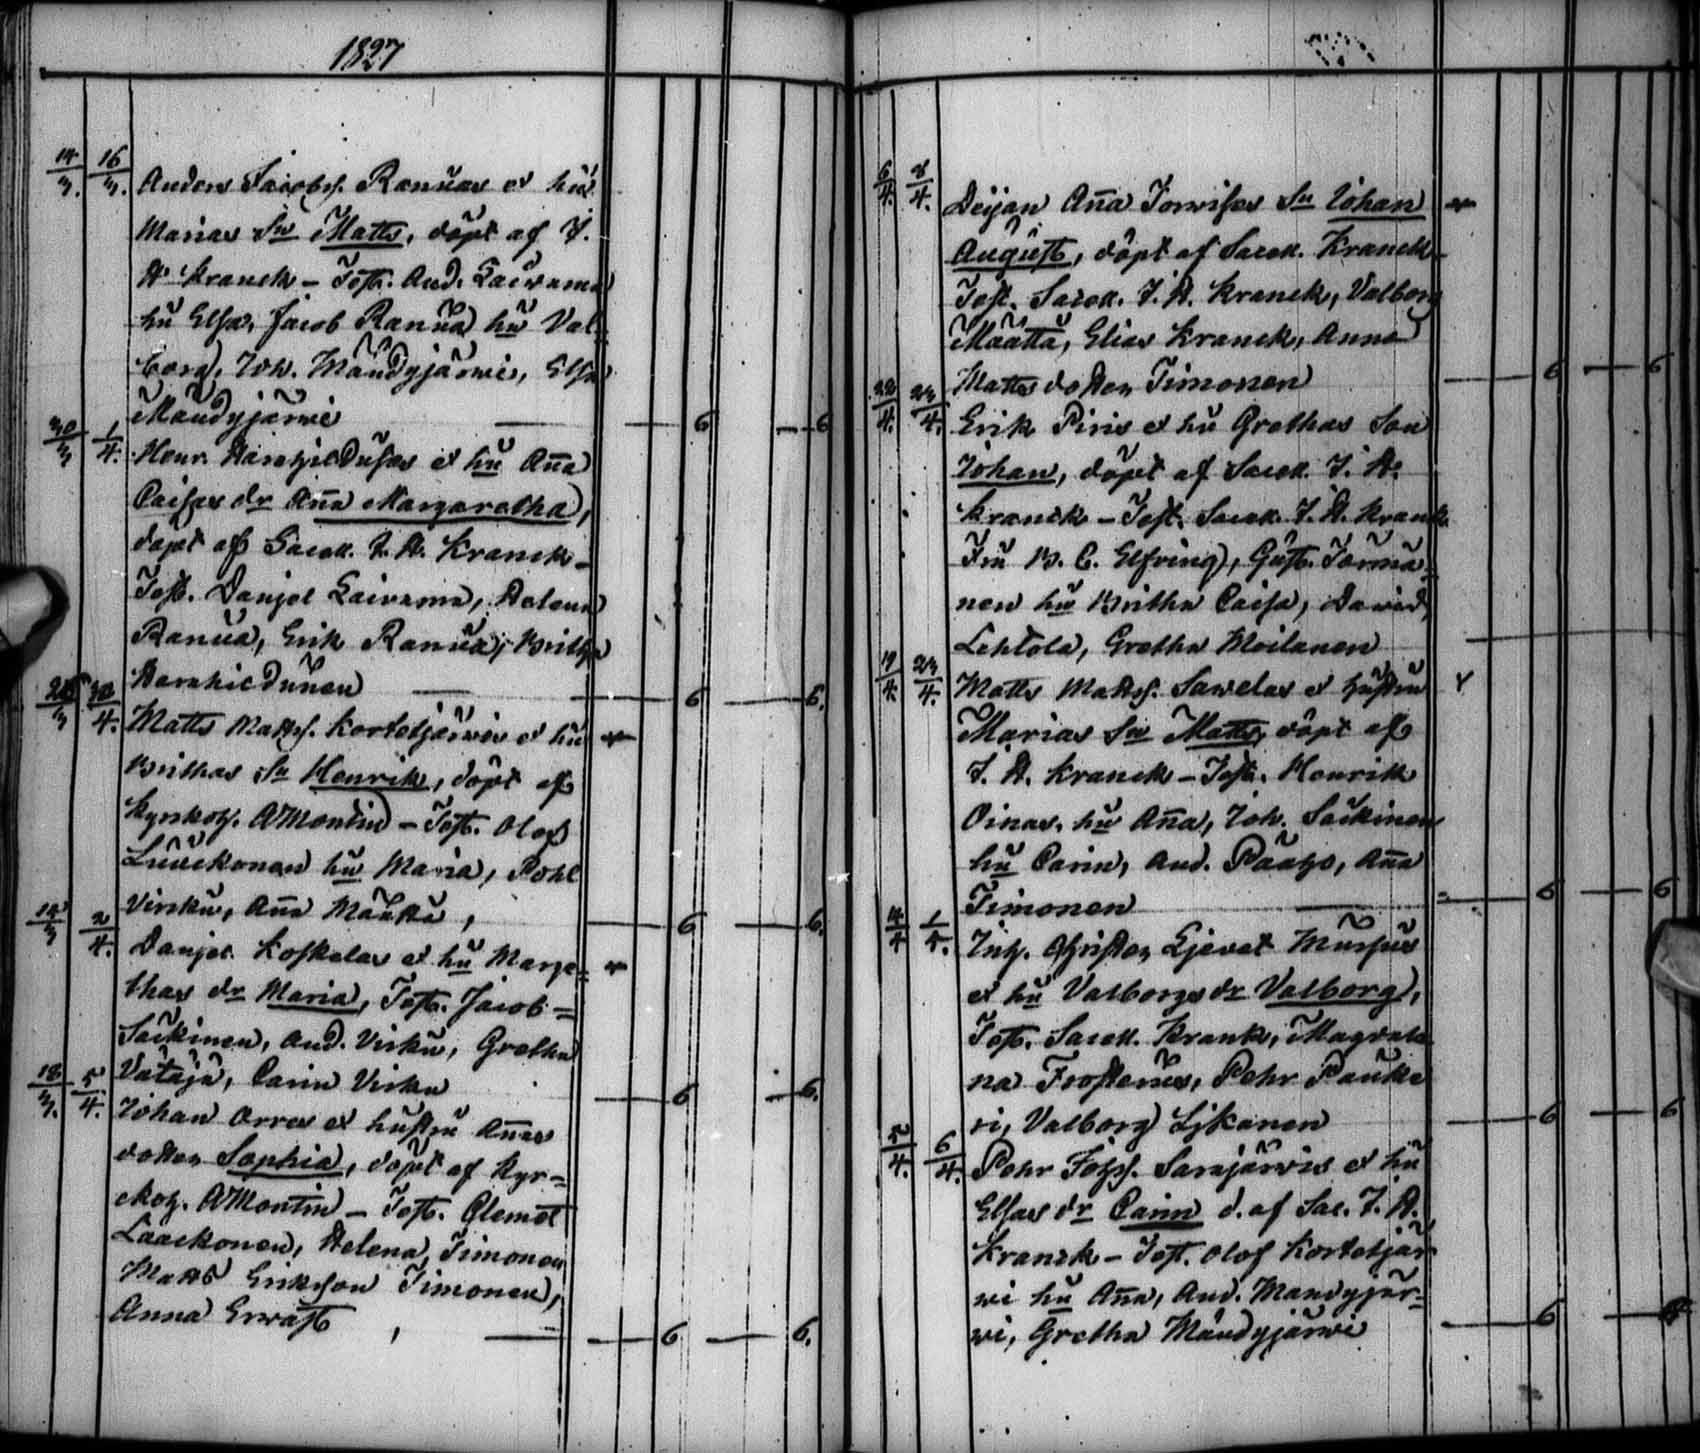 1827
14/3. 16/3. Anders Jacobs. Ranuas et hu
Marias Sn Matts, döpt af J.
A. Kranck – Test. And. Lairama
hu Elsa, Jacob Ranua hu Val
borg, Joh. Mändyjärwi, Elsa
Mändyjärwi 6 6
30/3 1/4. Henr. et hu Aña
Caisas dr Aña Margaretha,
döpt af Sacell. J. A. Kranck –
Test. Danjel Lairama, Helena
Ranua, Erik Ranua, Britha
6 6.
Matts Matts. Kortetjärwis et hu
Brithas Sn Henrik, döpt af
Kyrkoh. AMontin – Test. Olof
Luuckonen hu Maria, Pohl
Virsku, Aña Määttä, 6 6.
14/3 2/4. Danjel Koskelas et hu Marge=
thas dr Maria, Test. Jacob =
Säckinen, And. Virku, Gretha
Vätäjä, Carin Virku 6 6.
18/3. 5/4. Johan Orres et hustru Añas
dotter Sophia, döpt af Kyr=
ckoh. AMontin – Test. Clemet
Laackonen, Helena Timonen
Matts Eriksson Timonen,
Anna Erwast 6 6.
6/4. 8/4. Deijan Aña Jowisas Sn Johan
August, döpt af Sacell. Kranck –
Test. Sacell. J. A. Kranck, Valborg
Määttä, Elias Kranck, Anna
Matts dotter Timonen 6 6
22/4. 23/4. Erik Piris et hu Grethas Son
Johan, döpt af Sacell. J. A.
Kranck – Test. Sacell. J. A. Kranck
Fru B. C. Elfving, Gust. Torma=
nen hu Britha Caisa, David
Lehtola, Gretha Moilanen
19/4. 23/4. Matts Matts. Sawelas et hustru
Marias Sn Matts, döpt af
J. A. Kranck – Test. Henrik
Oinas, hu Aña, Joh. Säckinen
hu Carin, And. Pääho, Aña
Timonen 6 6
Christer Ljevet Mursus
et hu Valborgs dr Valborg,
Test. Sacell. Krank, Magdale
na Frosterus, Pehr Pauke
ri, Valborg Likanen 6 6
5/4. 6/4. Pehr Sarajärwis et hu
Elsas dr Carin d. af Sac. J. A.
Kranck – Test. Olof Kortetjär
wi hu Aña, And. Mandyjär=
wi, Gretha Mändyjärwi 6 6